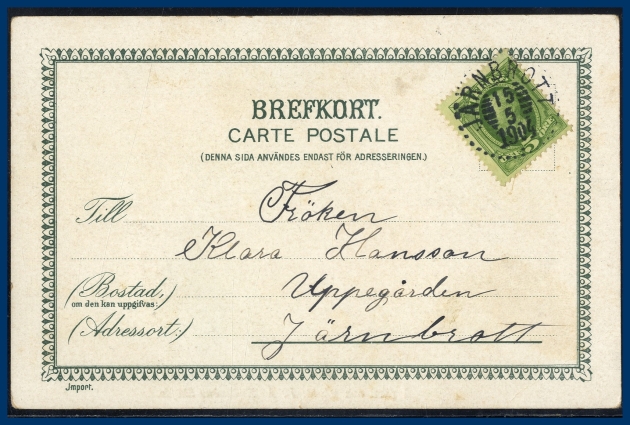 BREFKORT.
CARTE POSTALE
(DENNA SIDA ANVÄNDES ENDAST FÖR ADRESSERINGEN.)
JÄRNBROTT
19
5
1904
Till Fröken
Klara Hansson
(Bostad,) Uppegården
om den kan uppgifvas:
(Adressort:) Järnbrott
Import.